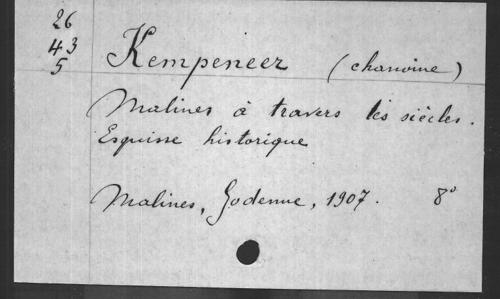 26
43
5
Kempeneer (chanoine)
Malines à travers les siècles.
Esquisse historique
Malines, Godenne, 1907. 8°